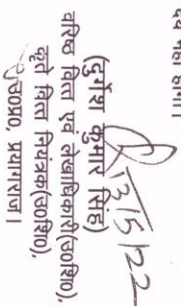 देय नहीं होगी।
13/5/22
(दुर्गेश कुमार सिंह)
वरिष्ठ वित्त एवं लेखाधिकारी(उ०शि०),
कृते वित्त नियंत्रक(उ०शि०),
उ०प्र०, प्रयागराज।